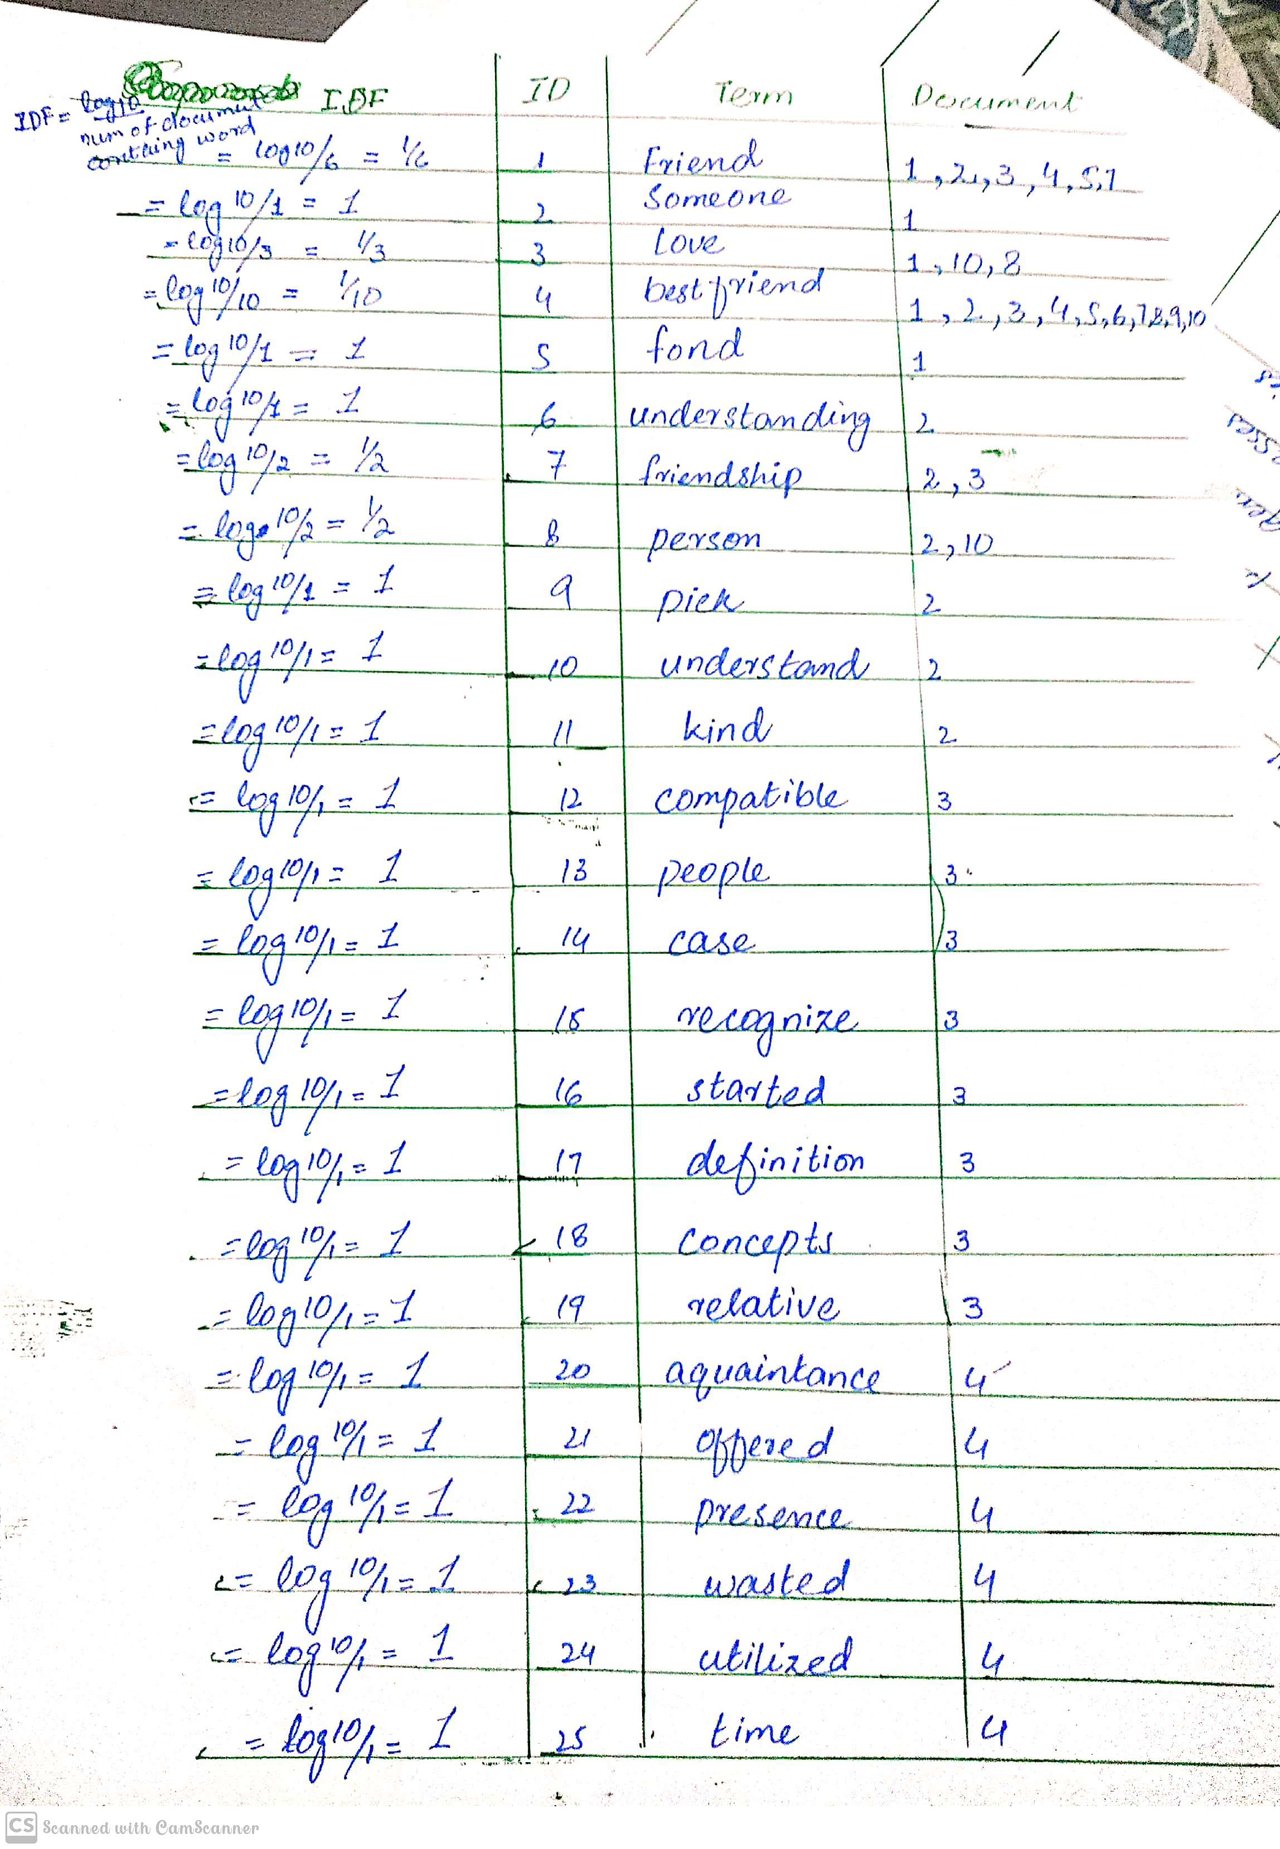 IDF ID Term Document
IDF = log10
num of document
containing word
= log10/6 = 1/6 1 Friend 1,2,3,4,5,7
= log 10/1 = 1 2 Someone 1
= log10/3 = 1/3 3 Love 1,10,8
= log 10/10 = 1/10 4 bestfriend 1,2,3,4,5,6,7,8,9,10
= log 10/1 = 1 5 fond 1
= log 10/1 = 1 6 understanding 2
= log 10/2 = 1/2 7 friendship 2,3
= log 10/2 = 1/2 8 person 2,10
= log 10/1 = 1 9 pick 2
= log 10/1 = 1 10 understand 2
= log 10/1 = 1 11 kind 2
= log 10/1 = 1 12 compatible 3
= log 10/1 = 1 13 people 3
= log 10/1 = 1 14 case 3
= log 10/1 = 1 15 recognize 3
= log 10/1 = 1 16 started 3
= log 10/1 = 1 17 definition 3
= log 10/1 = 1 18 concepts 3
= log 10/1 = 1 19 relative 3
= log 10/1 = 1 20 aquaintance 4
= log 10/1 = 1 21 offered 4
= log 10/1 = 1 22 presence 4
= log 10/1 = 1 23 wasted 4
= log 10/1 = 1 24 utilized 4
= log 10/1 = 1 25 time 4
CS Scanned with CamScanner